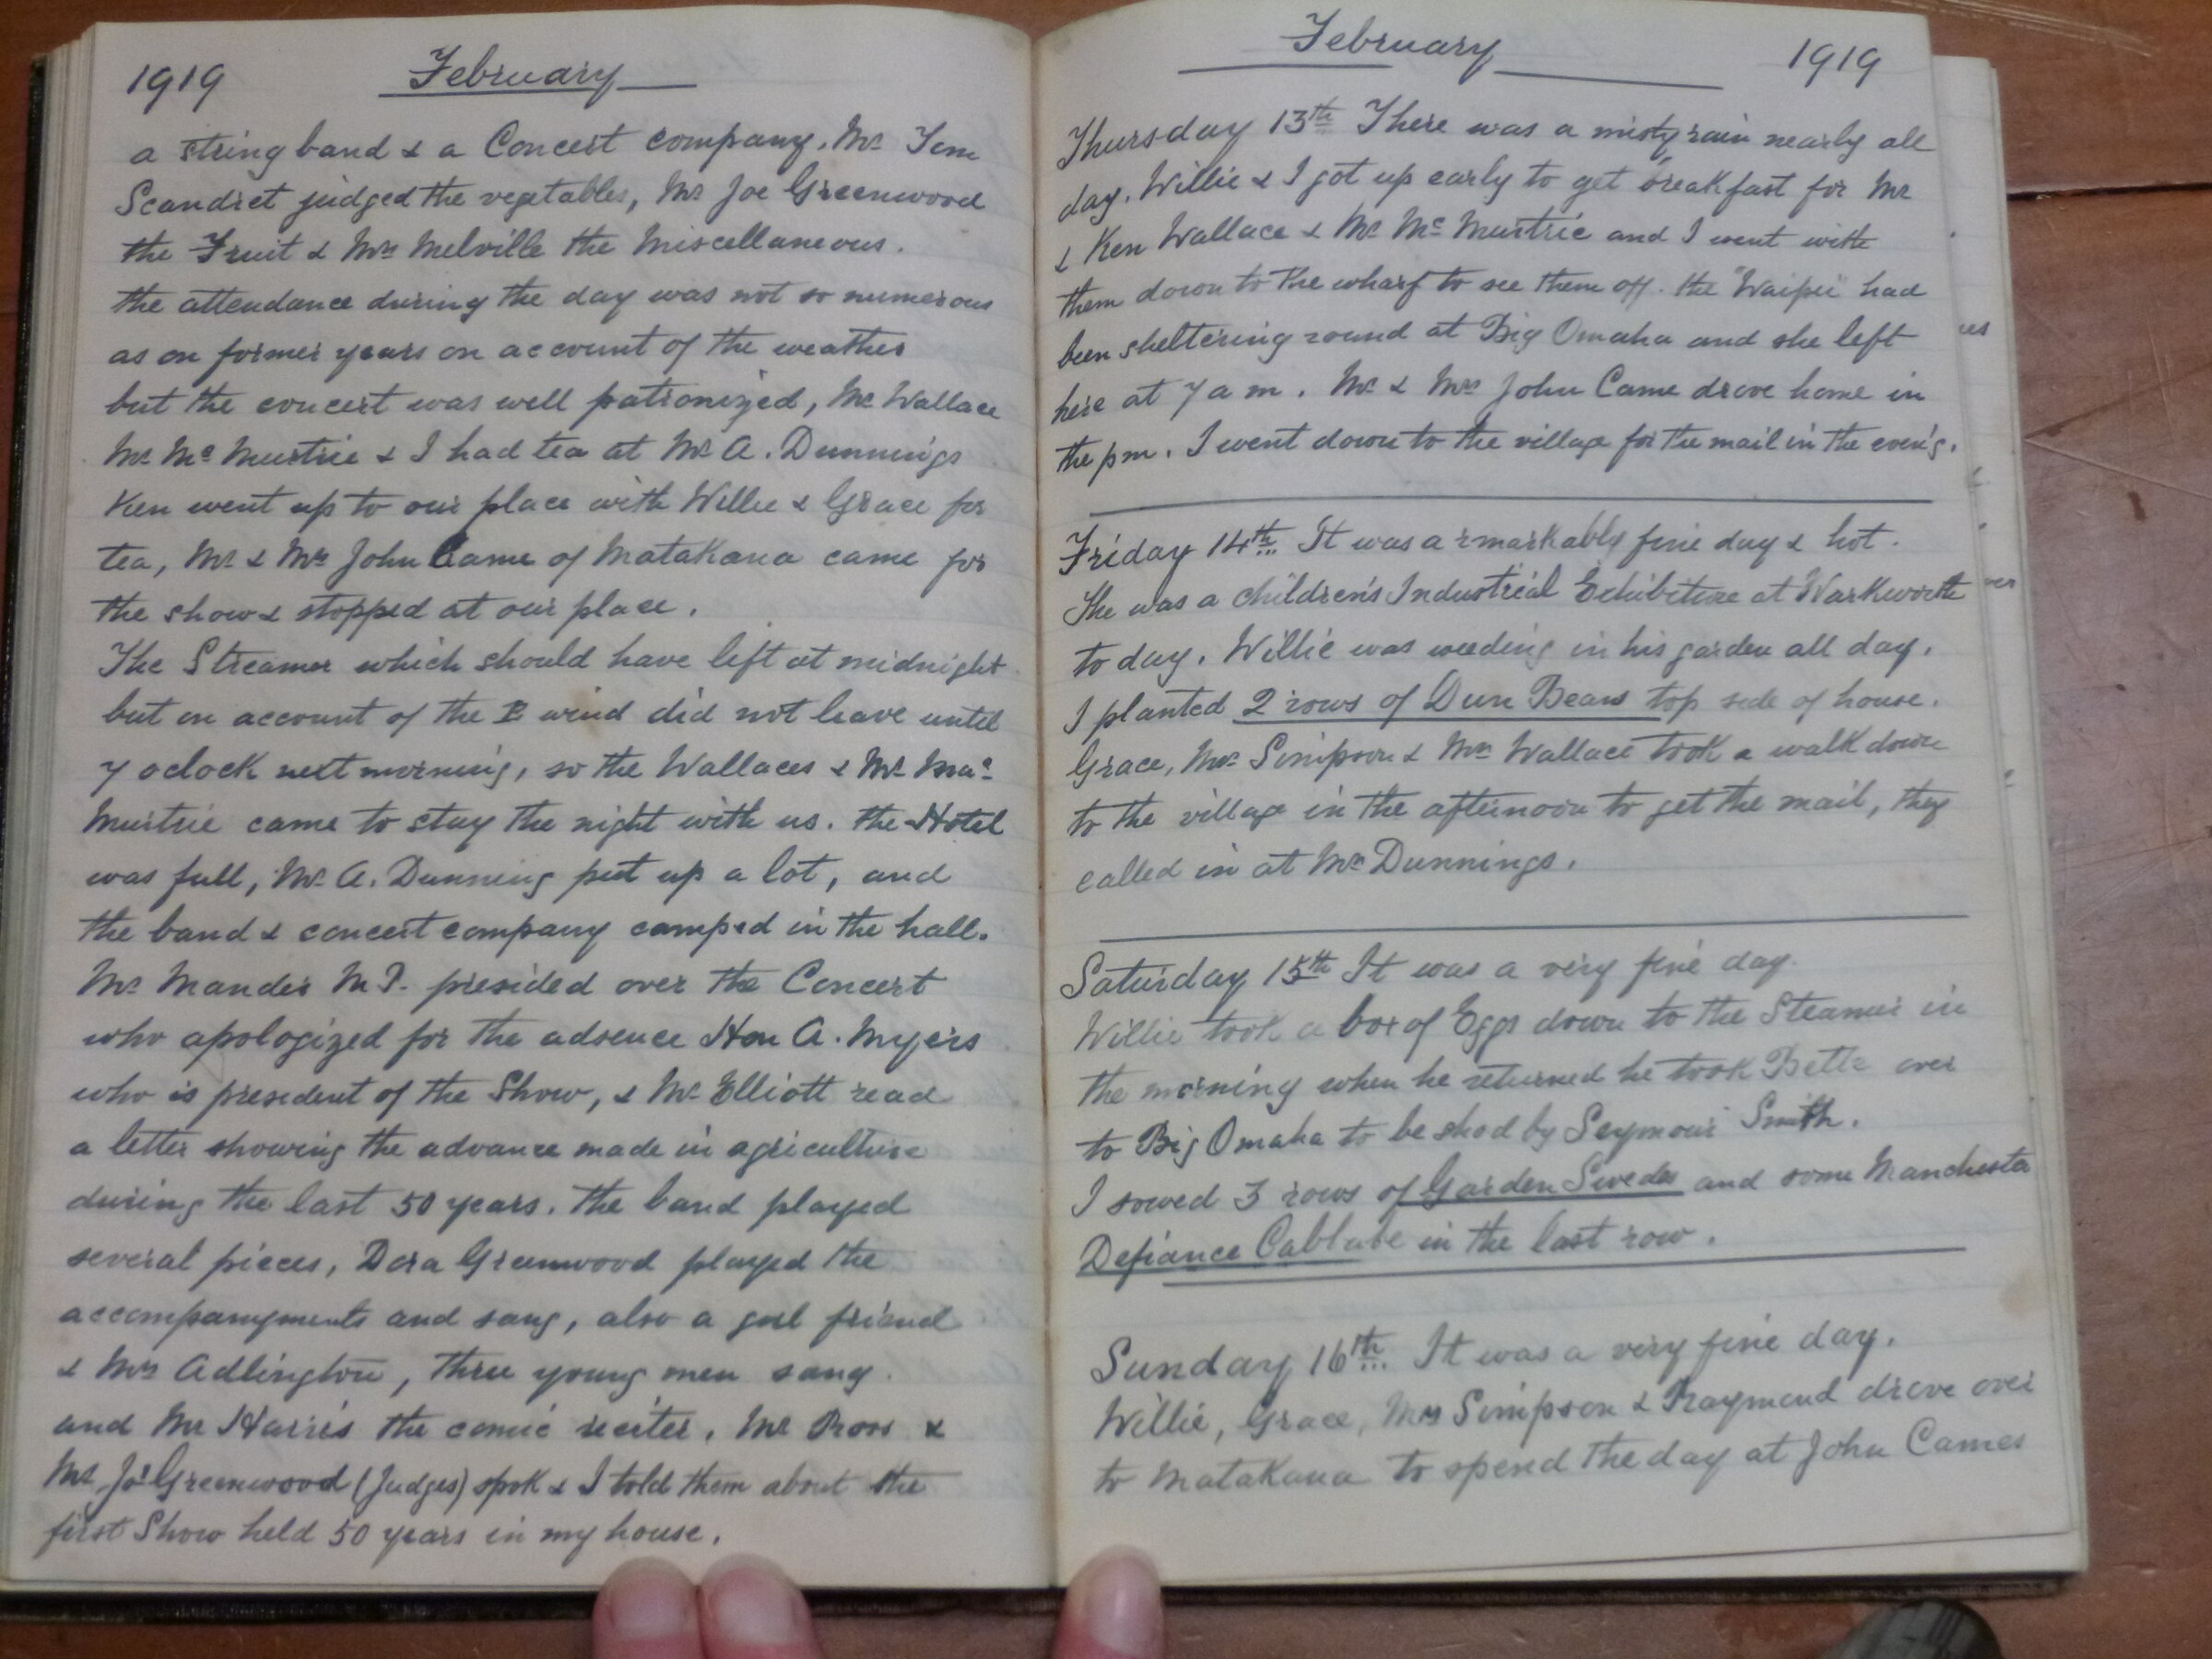 1919 February
a string band & a Concert company. Mr Tom
Scandret judged the vegetables, Mr Joe Greenwood
the Fruit & Mrs Melville the Miscellaneous.
the attendance during the day was not so numerous
as on former years on account of the weather
but the concert was well patronized, Mr Wallace
Mr Mc Murtrie & I had tea at Mr A. Dunnings
Ken went up to our place with Willie & Grace for
tea, Mr & Mrs John Came of Matakana came for
the show & stopped at our place.
The Streamer which should have left at midnight
but on account of the E wind did not leave until
7 oclock next morning, so the Wallaces & Mr Mac
Murtrie came to stay the night with us. the Hotel
was full, Mr A. Dunning put up a lot, and
the band & concert company camped in the hall.
Mr Mander M.P. presided over the Concert
who apologized for the adsence Hon A. Myers
who is president of the Show, & Mr Elliott read
a letter showing the advance made in agriculture
during the last 50 years. the band played
several pieces, Dora Greenwood played the
accompanyments and sang, also a girl friend
& Mrs Adlington, three young men sang.
and Mr Harris the comic reciter. Mr Ross &
Mr Jo Greenwood (Judges) spok & I told them about the
first Show held 50 years in my house.
February 1919
Thursday 13th There was a misty rain nearly all
day. Willie & I got up early to get breakfast for Mr
& Ken Wallace & Mr Mc Murtrie and I went with
them down to the wharf to see them off. the "Waipu" had
been sheltering round at Big Omaha and she left
here at 7 a m. Mr & Mrs John Came drove home in
the pm. I went down to the village for the mail in the even'g.
Friday 14th It was a rmarkably fine day & hot.
The was a children's Industrial Exhibition at Warkworth
to day. Willie was weeding in his garden all day.
I planted 2 rows of Dun Beans top side of house.
Grace, Mrs Simpson & Mrs Wallace took a walk down
to the village in the afternoon to get the mail, they
called in at Mrs Dunnings.
Saturday 15th It was a very fine day.
Willie took a box of Eggs down to the Steamer in
the morning when he returned he took Bella over
to Big Omaha to be shod by Seymour Smith.
I sowed 3 rows of Garden Swedes and some Manchester
Defiance Cabbabe in the last row.
Sunday 16th It was a very fine day.
Willie, Grace, Mrs Simpson & Raymond drove over
to Matakana to spend the day at John Cames